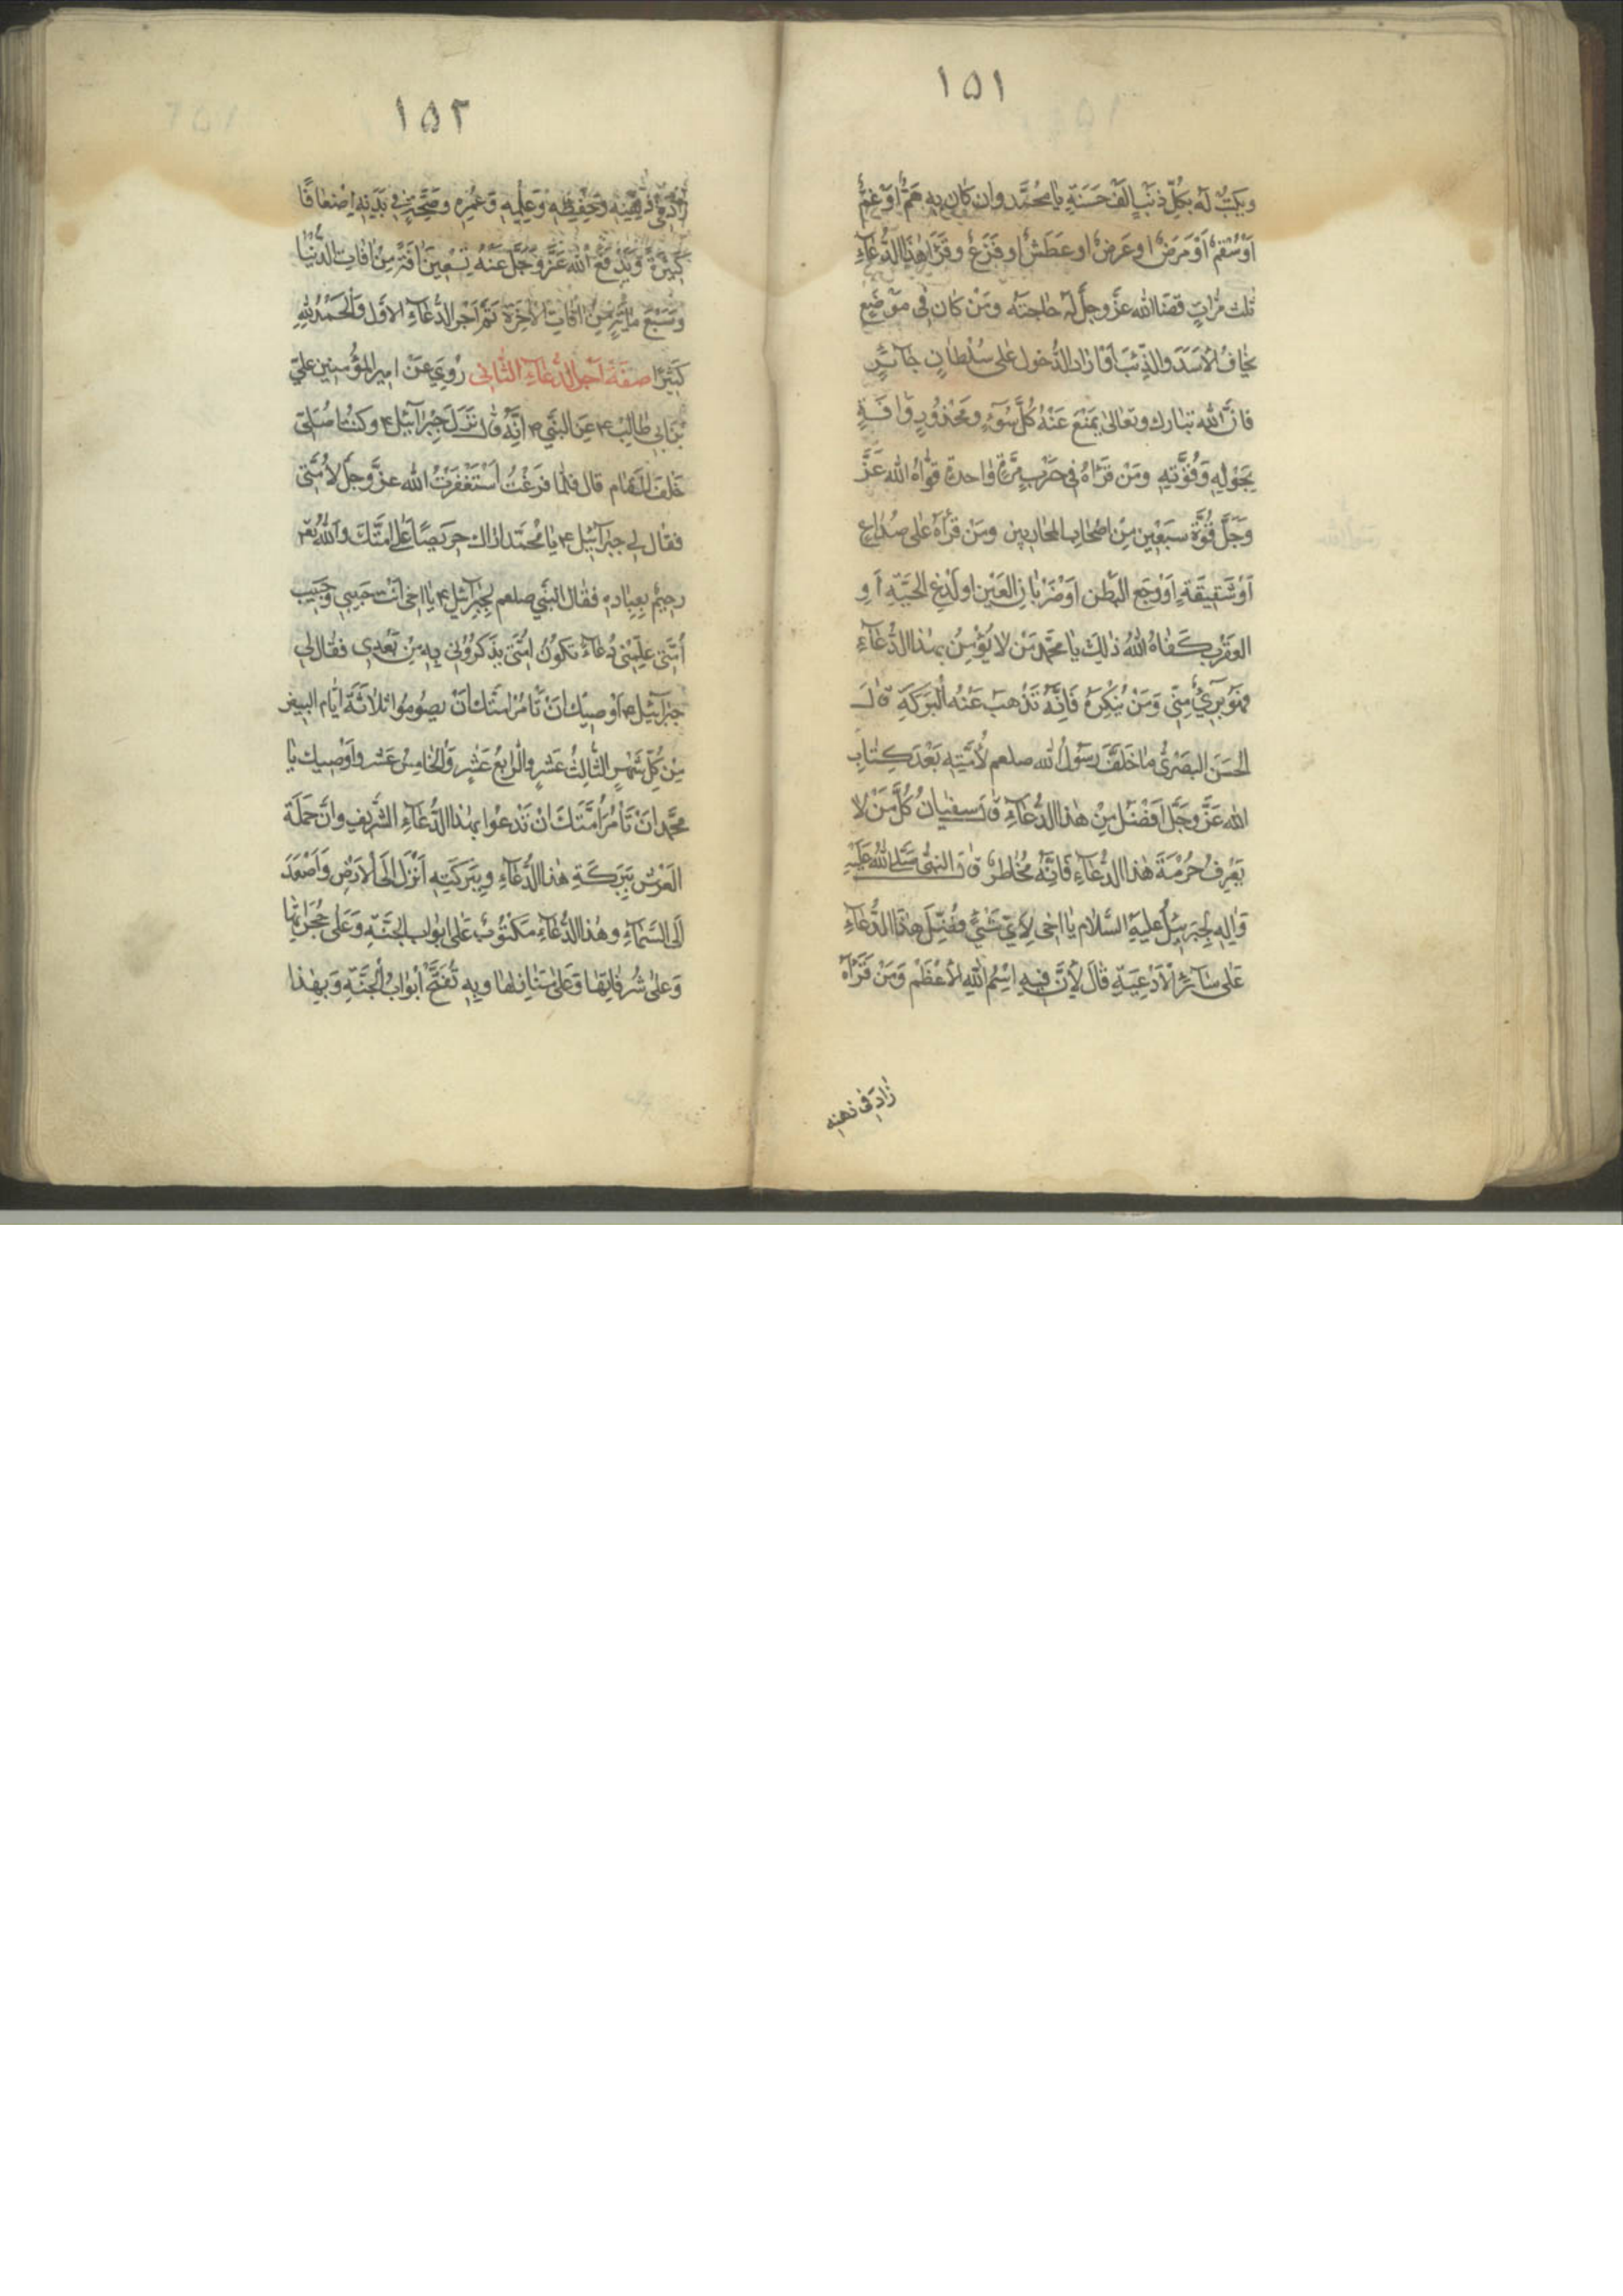 ١٥١
ويكتب له بكل ذنب الف حسنة يا محمد وان كان به هم او غم
او سقم او مرض او عرض او عطش او فزع وقرأ هذا الدعاء
ثلث مرات قضا الله عز وجل له حاجته ومن كان في موضع
يخاف الاسد والذئب او اراد الدخول على سلطان جائر
فان الله تبارك وتعالى يمنع عنه كل سوء ومحذور وافة
بحوله وقوته ومن قراه في حرب مرة واحدة قواه الله عز
وجل قوة سبعين من اصحاب المحاربين ومن قرأه على صداع
او شقيقة او وجع البطن او ضربان العين او لدغ الحية او
العقرب كفاه الله ذلك يا محمد من لا يؤمن بهذا الدعاء
فهو بريء مني ومن ينكره فانه تذهب عنه البركة قال
الحسن البصري ما خلف رسول الله صلعم لأمته بعد كتاب
الله عز وجل افضل من هذا الدعاء قال سفيان كل من لا
يعرف حرمة هذا الدعاء فانه مخاطر قال النبي صلى الله عليه
واله لجبرئيل عليه السلام يا اخي لاي شيء فضل هذا الدعاء
على سائر الادعية قال لان فيه اسم الله الاعظم ومن قرأه
زاد في ذهنه
١٥٢
زاد في ذهنه وحفظه وعلمه وعمره وصحته في بدنه اضعافا
كثيرة ويدفع الله عز وجل عنه تسعين افة من افات الدنيا
وسبع مائة من افات الاخرة تم اجر الدعاء الاول والحمد لله
كثيرا صفة اجر الدعاء الثاني روي عن امير المؤمنين علي
بن ابي طالب ع عن النبي ص انه قال نزل جبرائيل ع وكنت اصلي
خلف المقام قال فلما فرغت استغفرت الله عز وجل لأمتي
فقال لي جبرآئيل ع يا محمد اراك حريصا على امتك والله تع
رحيم بعباده فقال النبي صلعم لجبرائيل ع يا اخي انت حبيبي وحبيب
امتي علمني دعاء تكون امتي يذكروني به من بعدي فقال لي
جبرائيل ع اوصيك ان تأمر امتك ان يصوموا ثلاثة ايام البيض
من كل شهر الثالث عشر والرابع عشر والخامس عشر واوصيك يا
محمد ان تأمر امتك ان تدعوا بهذا الدعاء الشريف وان حملة
العرش ببركة هذا الدعاء وببركته انزل الى الارض واصعد
الى السماء وهذا الدعاء مكتوب على ابواب الجنة وعلى حجراتها
وعلى شرفاتها وعلى منازلها وبه تفتح ابواب الجنة وبهذا